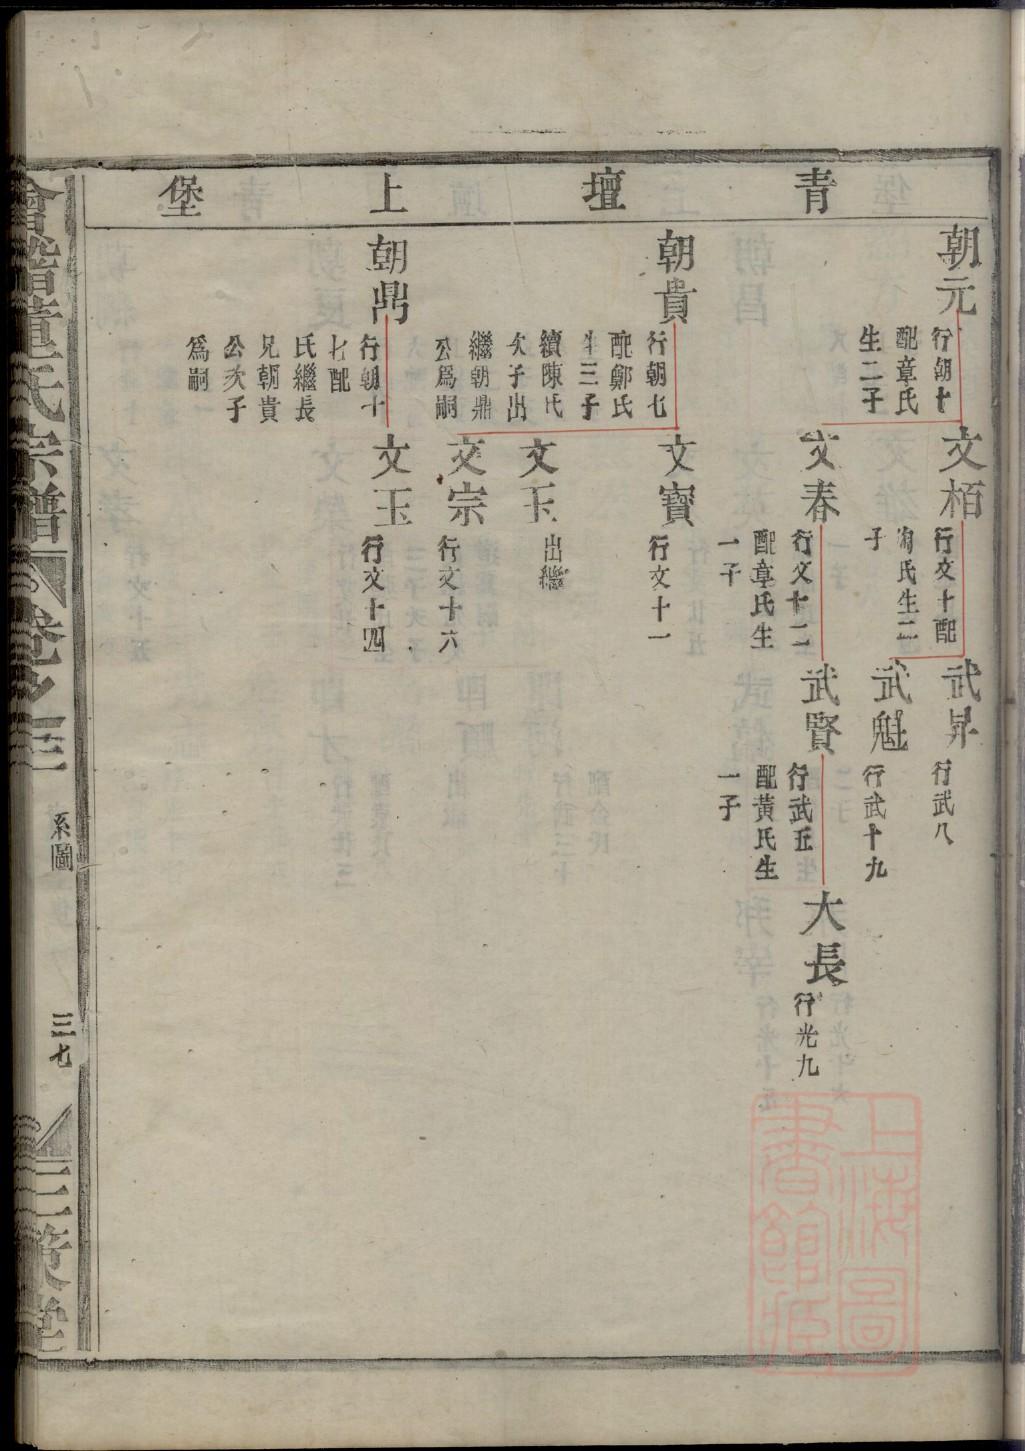 青壇上堡
朝元
行朝十
配章氏
生二子
朝貴
行朝七
配鄭氏
生三子
續陳氏
次子出
繼朝鼎
公爲嗣
朝鼎
行朝十
七配
氏繼長
兄朝貴
公次子
爲嗣
文栢
行文十配
陶氏生二
子
文春
行文十二
配章氏生
一子
文寶
行文十一
文玉
出繼
文宗
行文十六
文玉
行文十四
武昇
行武八
武魁
行武十九
武賢
行武五
配黃氏生
一子
大長
行光九
會稽董氏宗譜
卷之三
系圖
三七
三策堂
上海圖書館藏